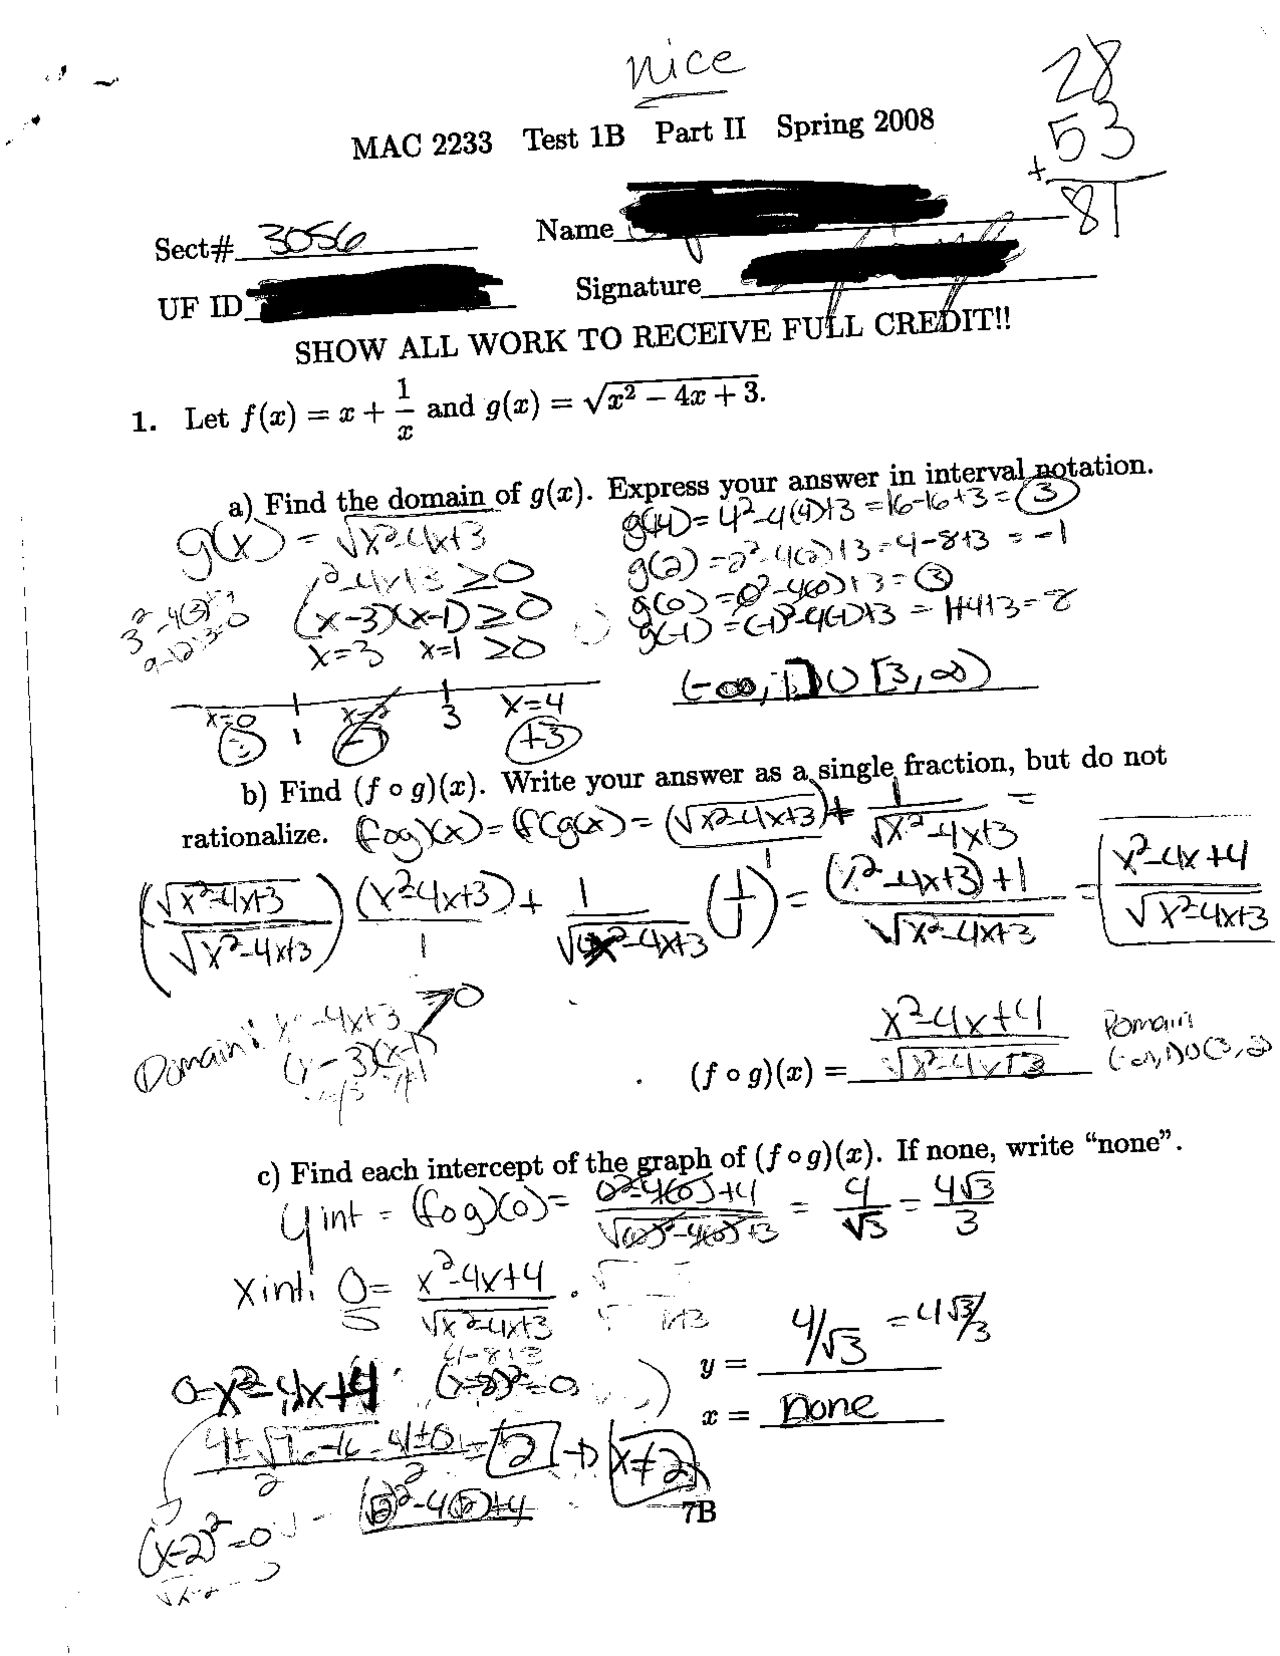 nice
28
MAC 2233 Test 1B Part II Spring 2008
+53
81
Sect# 3056 Name
UF ID Signature
SHOW ALL WORK TO RECEIVE FULL CREDIT!!
1. Let f(x) = x + 1/x and g(x) = √(x² − 4x + 3).
a) Find the domain of g(x). Express your answer in interval notation.
g(x) = √x²-4x+3
x²-4x+3 ≥0
(x-3)(x-1) ≥0
x=3 x=1 ≥0
g(4) = 4²-4(4)+3 = 16-16+3 = 3
g(2) = 2²-4(2)+3 = 4-8+3 = -1
g(0) = 0²-4(0)+3 = 3
g(-1) = (-1)²-4(-1)+3 = 1+4+3 = 8
(-∞, 1] ∪ [3, ∞)
x=0 1 x=2 3 x=4
-1 +3
b) Find (f ∘ g)(x). Write your answer as a single fraction, but do not
rationalize. (fog)(x) = f(g(x) = (√x²-4x+3) + 1/√x²-4x+3 =
(√x²-4x+3/√x²-4x+3) (x²-4x+3)/1 + 1/√x²-4x+3 (1/1) = (x²-4x+3)+1/√x²-4x+3 = x²-4x+4/√x²-4x+3
Domain: x²-4x+3 >0
(x-3)(x-1)
(f ∘ g)(x) = x²-4x+4/√x²-4x+3
Domain
(-∞,1)∪(3,∞)
c) Find each intercept of the graph of (f ∘ g)(x). If none, write “none”.
y int = (fog)(0) = 0²-4(0)+4/√(0)²-4(0)+3 = 4/√3 = 4√3/3
x int. 0 = x²-4x+4/√x²-4x+3
y = 4/√3 = 4√3/3
0=x²-4x+4 (x-2)²=0
x = none
= 2 → x≠2
(2)²-4(2)+4
7B
(x-2)²=0